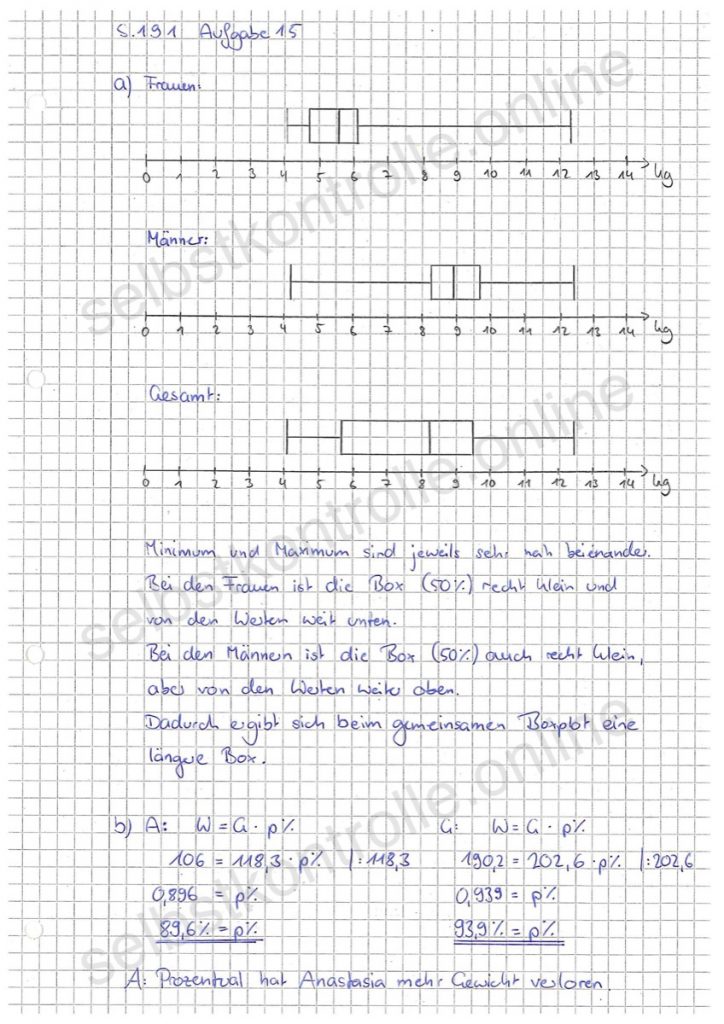 S.191 Aufgabe 15
a) Frauen:
0 1 2 3 4 5 6 7 8 9 10 11 12 13 14 kg
Männer:
0 1 2 3 4 5 6 7 8 9 10 11 12 13 14 kg
Gesamt:
0 1 2 3 4 5 6 7 8 9 10 11 12 13 14 kg
Minimum und Maximum sind jeweils sehr nah beienander.
Bei den Frauen ist die Box (50%) recht klein und
von den Werten weit unten.
Bei den Männern ist die Box (50%) auch recht klein,
aber von den Werten weiter oben.
Dadurch ergibt sich beim gemeinsamen Boxplot eine
längere Box.
b) A: W = G · p% G: W = G · p%
106 = 118,3 · p% |:118,3 190,2 = 202,6 · p% |:202,6
0,896 = p% 0,939 = p%
89,6% = p% 93,9% = p%
A: Prozentual hat Anastasia mehr Gewicht verloren.
selbstkontrolle.online
selbstkontrolle.online
selbstkontrolle.online